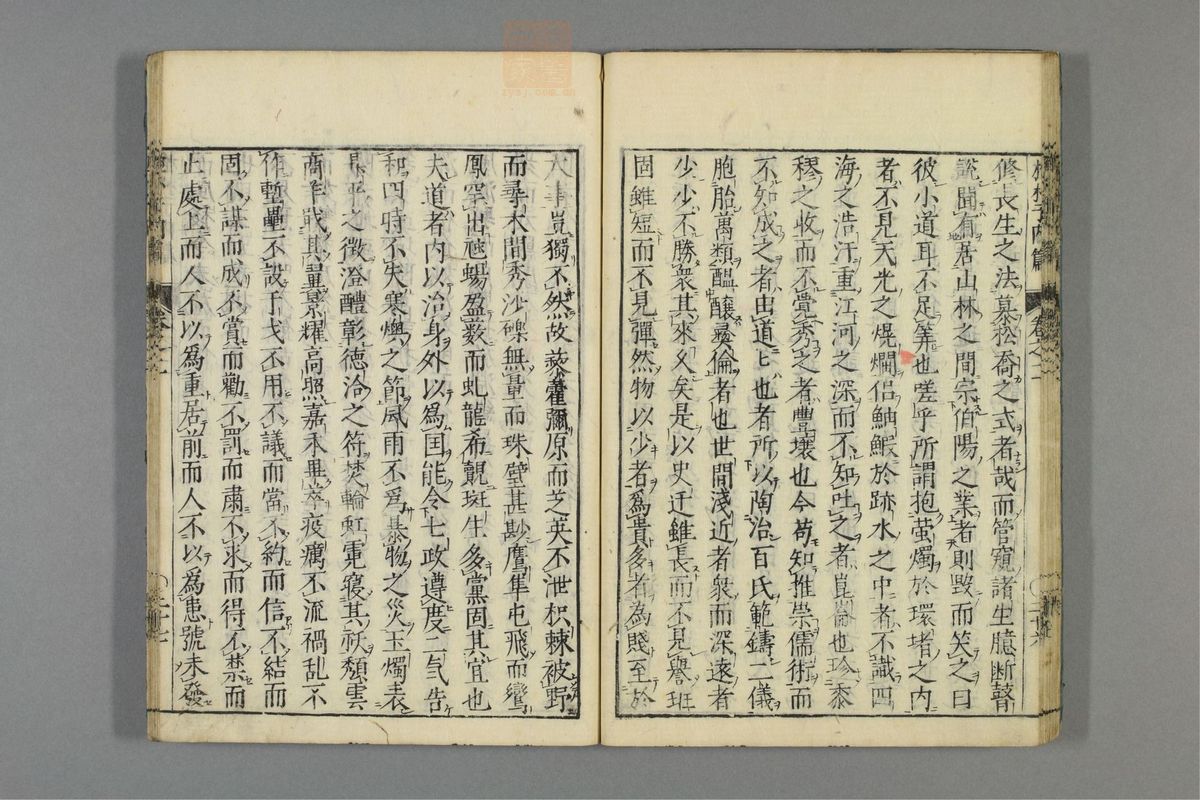 修長生之法慕松喬之式者哉而管窺諸生臆断瞽
說聞有居山林之間宗伯陽之業者則毀而笑之曰
彼小道耳不足筭也嗟乎所謂抱萤燭於環堵之内
者不見天光之焜爛侣鮋鰕於跡水之中者不識四
海之浩汗重江河之深而不知吐之者崑崙也珍黍
稷之收而不覺秀之者豊壤也今苟知推崇儒術而
不知成之者由道匕也者所以陶冶百氏範鑄二儀
胞胎萬類醞釀彛倫者也世間淺近者衆而深遠者
少少不勝衆其來久矣是以史迁雖長而不見譽班
固雖短而不見彈然物以少者爲貴多者為賤至於
人事豈獨不然故藜藿彌原而芝英不泄枳棘被野
而尋木間秀沙礫無量而珠璧甚尠鷹隼屯飛而鸞
鳳罕出虺蜴盈薮而虬龍希覿班生多黨固其宜也
夫道者内以治身外以為国能令七政遵度二气告
和四時不失寒燠之節風雨不爲暴物之災玉燭表
昇平之徵澄醴彰德洽之符焚輪虹霓寢其祅頹雲
商羊戢其翼景耀高照嘉禾畢萃疫癘不流禍乱不
作塹壘不設干戈不用不議而當不約而信不結而
固不謀而成不賞而勸不罰而肅不求而得不禁而
止處上而人不以爲重居前而人不以為患號未發
抱朴子内篇 卷之二
二十七